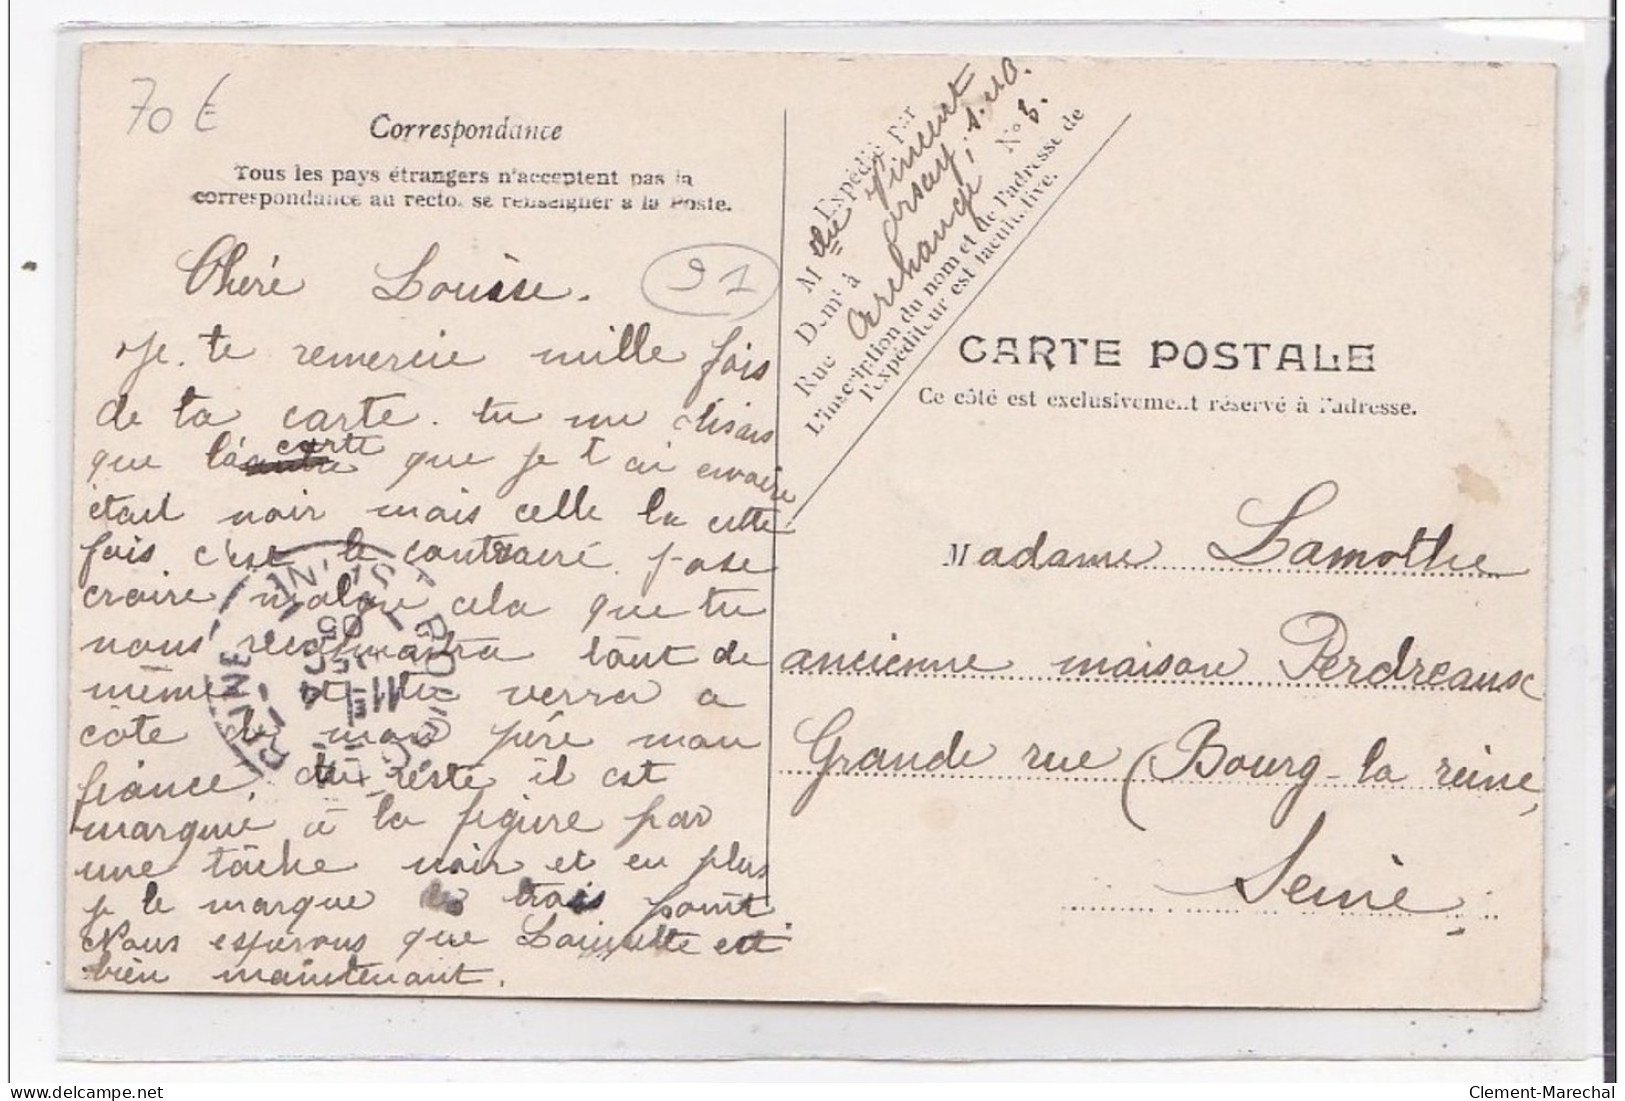 70 €
Correspondance
Tous les pays étrangers n'acceptent pas la
correspondance au recto. se renseigner à la Poste.
91
Chéré Louise.
Je te remercie mille fois
de ta carte. tu me disais
que la carte que je t ai envoire
était noir mais celle la cette
fois c'est le contraire. j ose
croire malgre cela que tu
nous reconnaitra tout de
même et tu verra a
côte de mon père mon
fiance, du reste il est
marque à la figure par
une tâche noir et en plus
je le marque de trois point.
Nous esperons que Louisette est
bien maintenant.
Expédié par
M elle Vincent
Demt à Orsay, S. et O.
Rue Archange No 3.
L'inscription du nom et de l'adresse de
l'expéditeur est facultative.
CARTE POSTALE
Ce côté est exclusivement réservé à l'adresse.
Madame Lamothe
ancienne maison Perdreaux
Grande rue (Bourg-la reine,
Seine
BOURG
REINE
Clement-Marechal